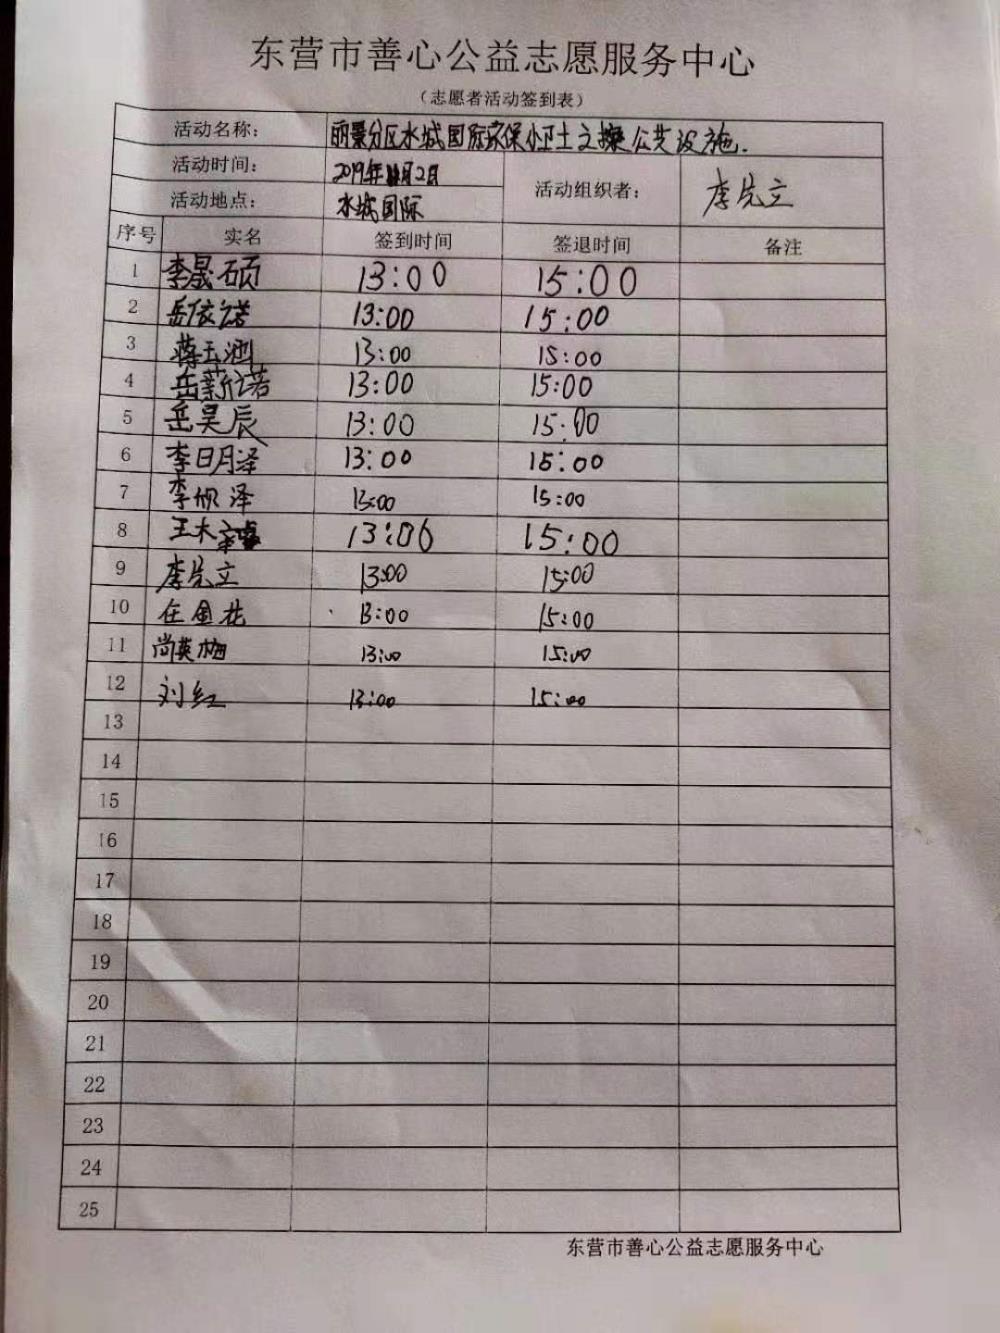 东营市善心公益志愿服务中心
（志愿者活动签到表）
活动名称： 丽景分区水城国际家保小卫士之擦公共设施.
活动时间： 2019年 月2日
活动组织者： 李先立
活动地点： 水城国际
序号 实名 签到时间 签退时间 备注
1 李晟硕 13:00 15:00
2 岳依诺 13:00 15:00
3 蒋玉 13:00 15:00
4 岳薪诺 13:00 15:00
5 岳昊辰 13:00 15:00
6 李明泽 13:00 15:00
7 李 泽 13:00 15:00
8 王木 13:00 15:00
9 李先立 13:00 15:00
10 任金花 13:00 15:00
11 尚英梅 13:00 15:00
12 刘红 13:00 15:00
13
14
15
16
17
18
19
20
21
22
23
24
25
东营市善心公益志愿服务中心